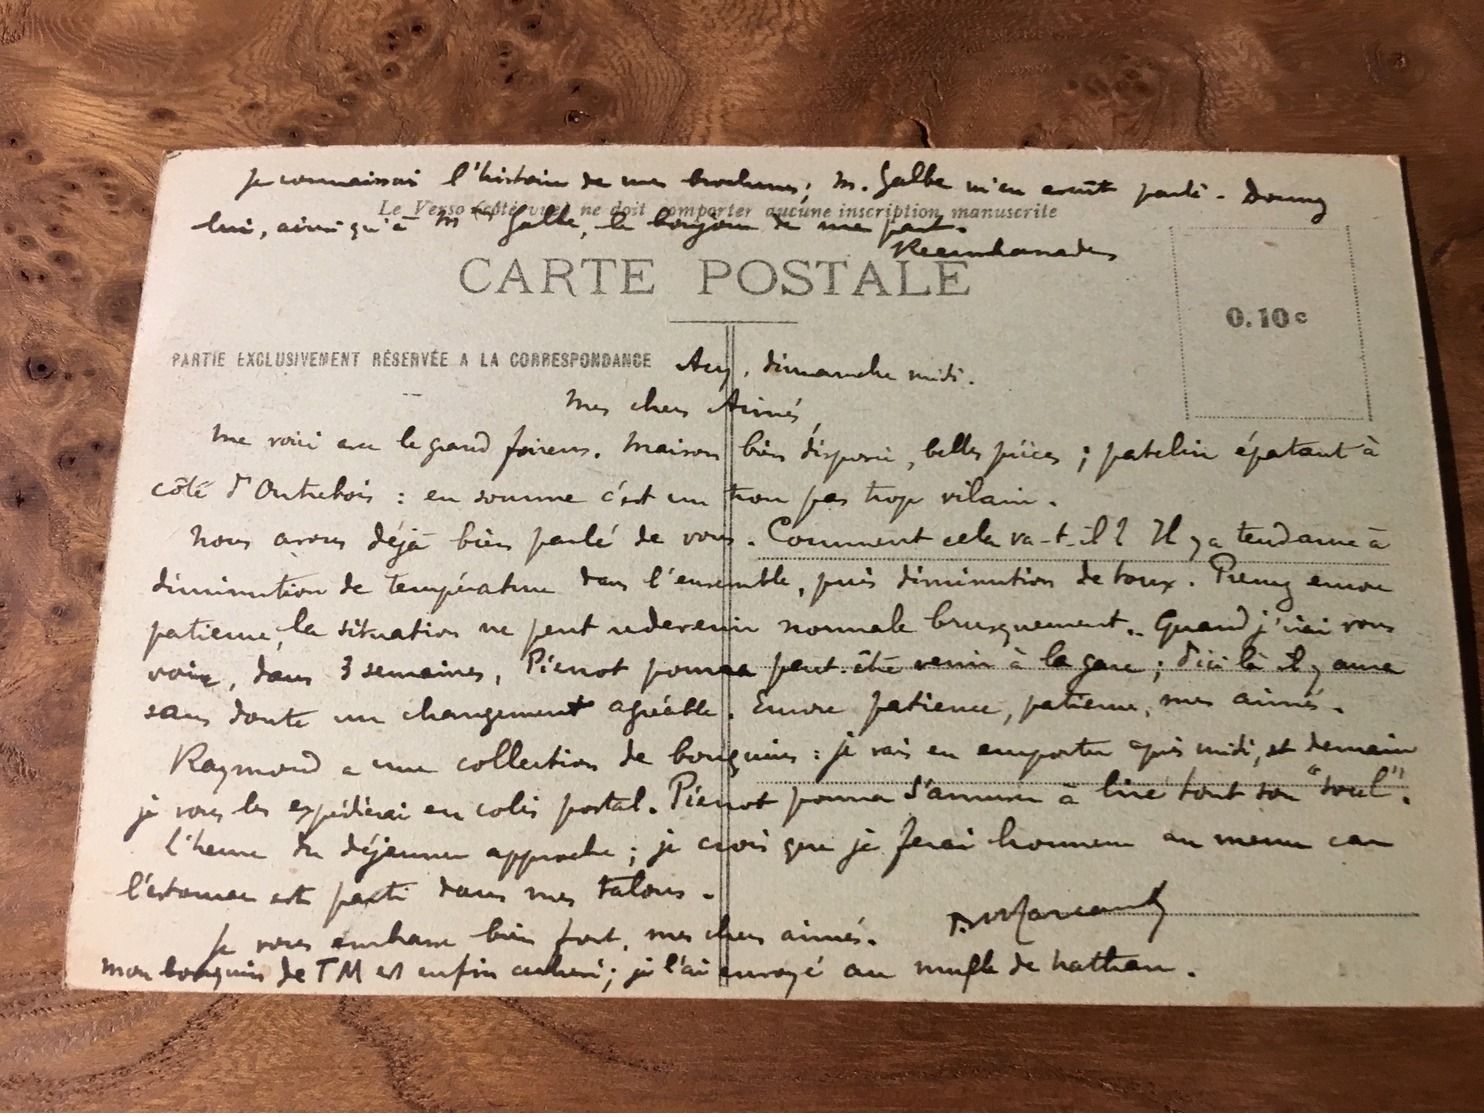 Je connaissais l'histoire de mes brochures; M. Galbe m'en avait parlé. Donnez
Le Verso (côté vue) ne doit comporter aucune inscription manuscrite
lui, ainsi qu'à Mme Galbe, le bonjour de ma part.
CARTE POSTALE
0.10c
PARTIE EXCLUSIVEMENT RÉSERVÉE A LA CORRESPONDANCE
Acy, dimanche midi.
Mes chers Aimés,
Me voici avec le grand foireux. Maison bien disposée, belles pièces; patelin épatant à
côté d'Outrebois: en somme c'est un trou pas trop vilain.
Nous avons déjà bien parlé de vous. Comment cela va-t-il? Il y a tendance à
diminution de température dans l'ensemble, puis diminution de toux. Prenez encore
patience, la situation ne peut redevenir normale brusquement. Quand j'irai vous
voir, dans 3 semaines, Pierrot pourra peut-être venir à la gare; d'ici là il y aura
sans doute un changement agréable. Encore patience, patience, mes aimés.
Raymond a une collection de bouquins: je vais en emporter après midi, et demain
je vous les expédierai en colis postal. Pierrot pourra s'amuser à lire tout son "soul".
L'heure du déjeuner approche; je crois que je ferai honneur au menu car
l'estomac est parti dans mes talons.
Je vous embrasse bien fort, mes chers aimés.
Mon bouquin de TM est enfin achevé; je l'ai envoyé au mufle de Nathan.